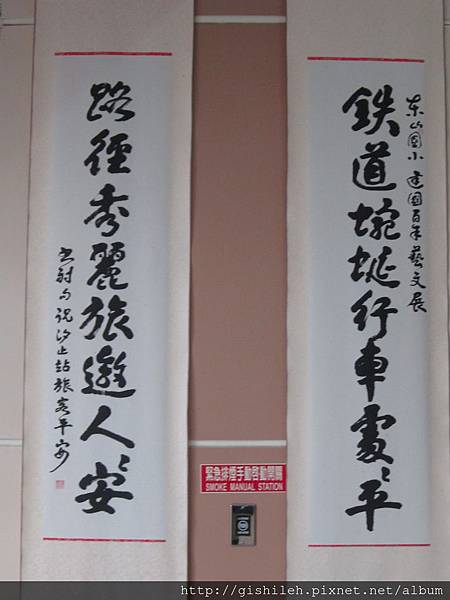 東山國小 建國百年藝文展
鉄道蜿蜒行車處〻平
路徑秀麗旅邀人〻安
書對句祝汐止站旅客平安
緊急排煙手動啓動開關
SMOKE MANUAL STATION
http://gishileh.pixnet.net/album